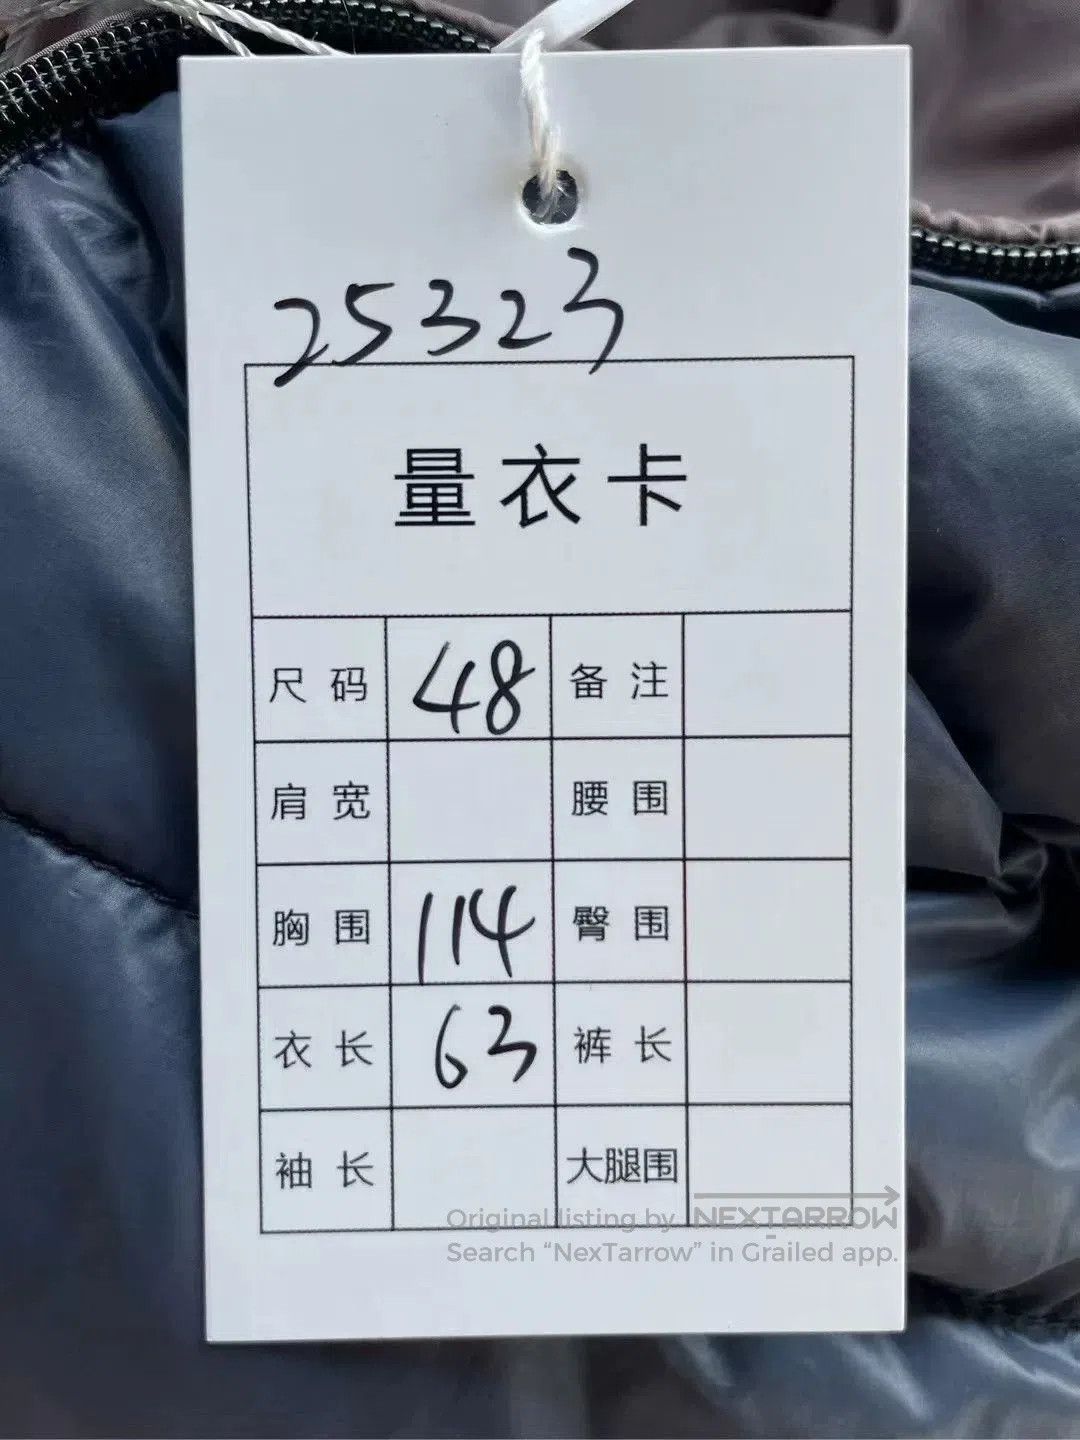 25323
量衣卡
尺码 48 备注
肩宽 腰围
胸围 114 臀围
衣长 63 裤长
袖长 大腿围
Original listing by NEXTARROW
Search “NexTarrow” in Grailed app.